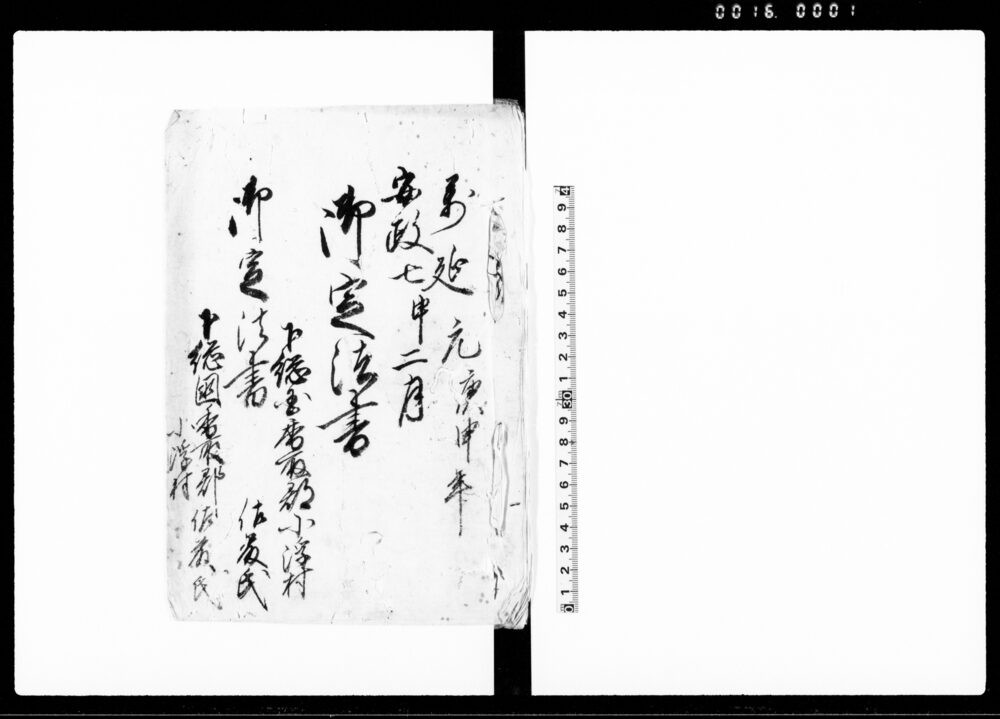 0016. 0001
万延元庚申年
安政七申二月
御定法書
下総国香取郡小浮村
佐藤氏
御定法書
下総國香取郡佐藤氏
小浮村
0 1 2 3 4 5 6 7 8 9 30 1 2 3 4 5 6 7 8 9 4